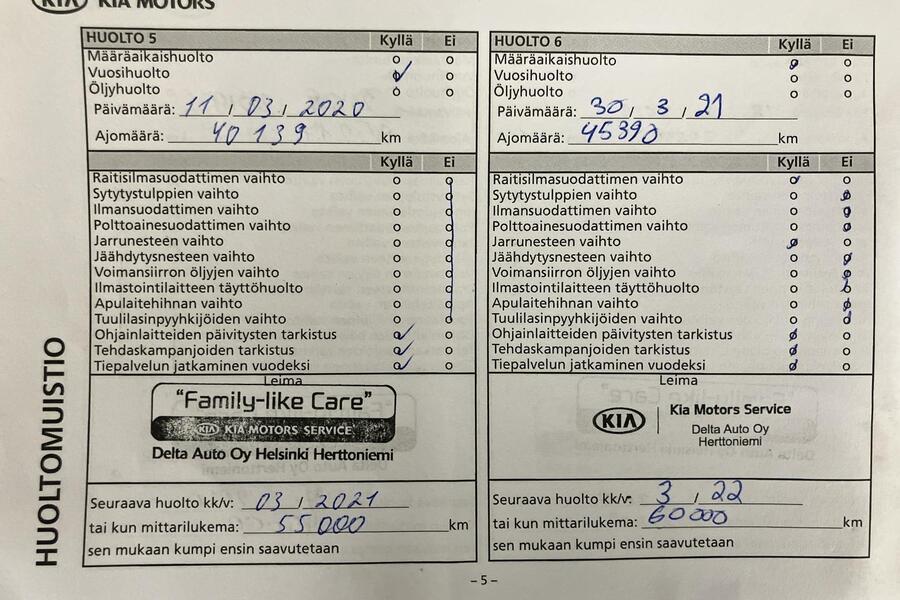 KIA KIA MOTORS
HUOLTOMUISTIO
HUOLTO 5 Kyllä Ei
Määräaikaishuolto
Vuosihuolto
Öljyhuolto
Päivämäärä: 11 / 03 / 2020
Ajomäärä: 40 139 km
Kyllä Ei
Raitisilmasuodattimen vaihto
Sytytystulppien vaihto
Ilmansuodattimen vaihto
Polttoainesuodattimen vaihto
Jarrunesteen vaihto
Jäähdytysnesteen vaihto
Voimansiirron öljyjen vaihto
Ilmastointilaitteen täyttöhuolto
Apulaitehihnan vaihto
Tuulilasinpyyhkijöiden vaihto
Ohjainlaitteiden päivitysten tarkistus
Tehdaskampanjoiden tarkistus
Tiepalvelun jatkaminen vuodeksi
Leima
"Family-like Care"
KIA KIA MOTORS SERVICE
Delta Auto Oy Helsinki Herttoniemi
Seuraava huolto kk/v: 03 / 2021
tai kun mittarilukema: 55 000 km
sen mukaan kumpi ensin saavutetaan
HUOLTO 6 Kyllä Ei
Määräaikaishuolto
Vuosihuolto
Öljyhuolto
Päivämäärä: 30 / 3 / 21
Ajomäärä: 45390 km
Kyllä Ei
Raitisilmasuodattimen vaihto
Sytytystulppien vaihto
Ilmansuodattimen vaihto
Polttoainesuodattimen vaihto
Jarrunesteen vaihto
Jäähdytysnesteen vaihto
Voimansiirron öljyjen vaihto
Ilmastointilaitteen täyttöhuolto
Apulaitehihnan vaihto
Tuulilasinpyyhkijöiden vaihto
Ohjainlaitteiden päivitysten tarkistus
Tehdaskampanjoiden tarkistus
Tiepalvelun jatkaminen vuodeksi
Leima
KIA Kia Motors Service
Delta Auto Oy
Herttoniemi
Seuraava huolto kk/v: 3 / 22
tai kun mittarilukema: 60 000 km
sen mukaan kumpi ensin saavutetaan
– 5 –